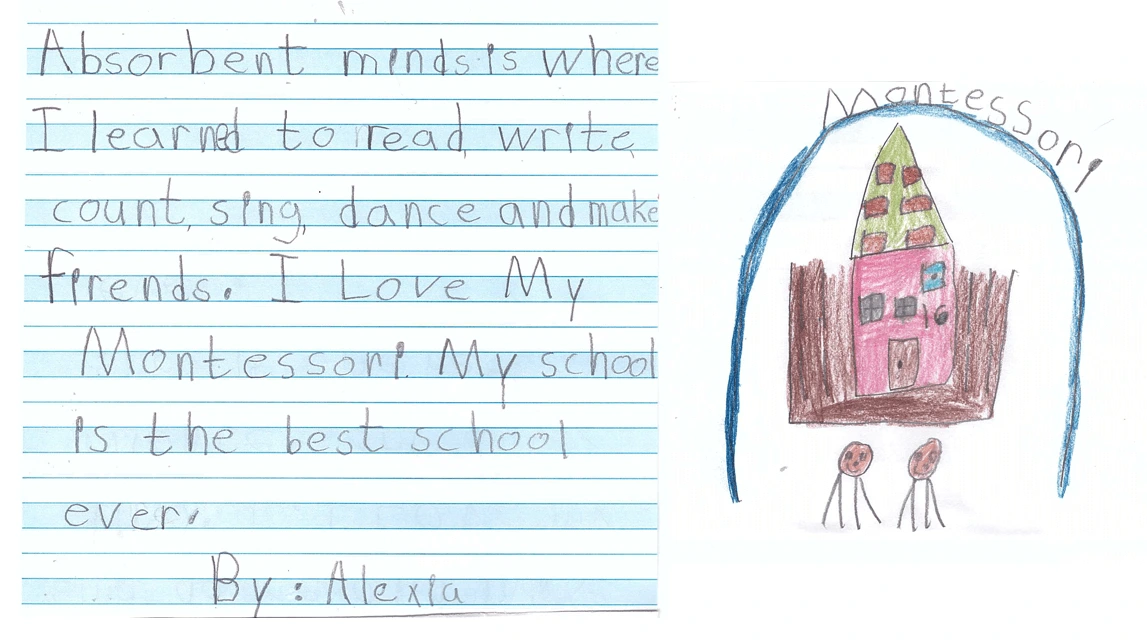 Absorbent minds is where
I learned to read, write,
count, sing, dance and make
firends. I Love My
Montessori. My school
is the best school
ever.
By: Alexia
Montessori
16